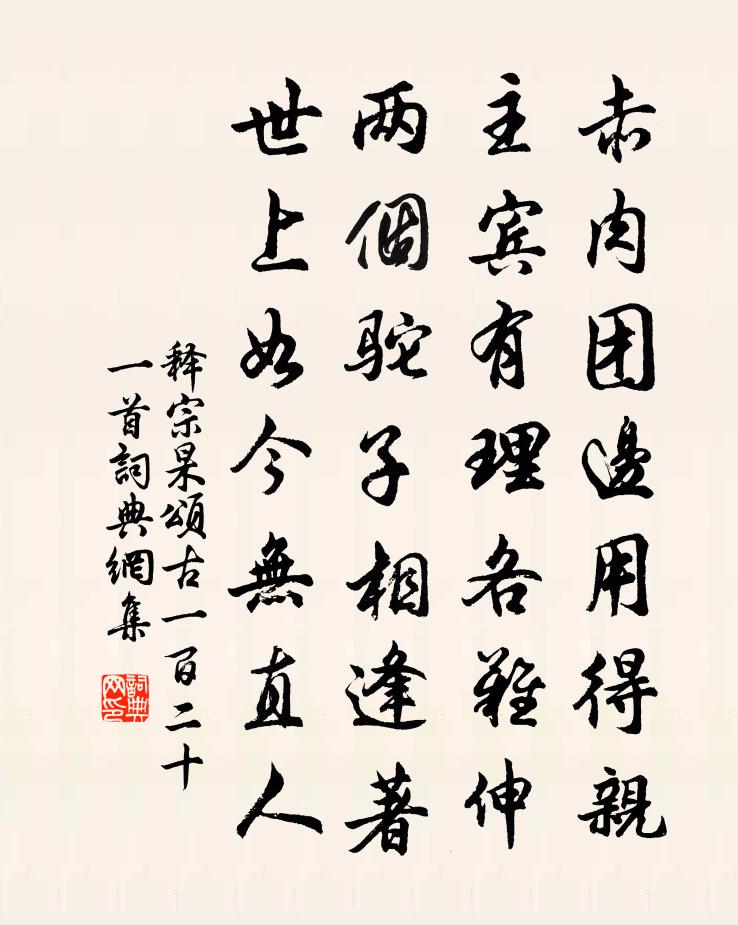 赤肉团邊用得親
主賓有理各難伸
两個駝子相逢著
世上如今無直人
释宗杲頌古一百二十
一首詞典網集
詞典
网印